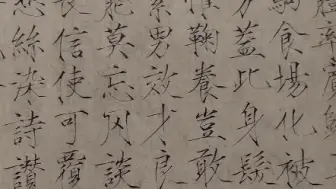 駒食場化被
蓋此身髮
惟鞠養豈敢
男效才良
能莫忘罔談
長信使可覆
悲絲染詩讚